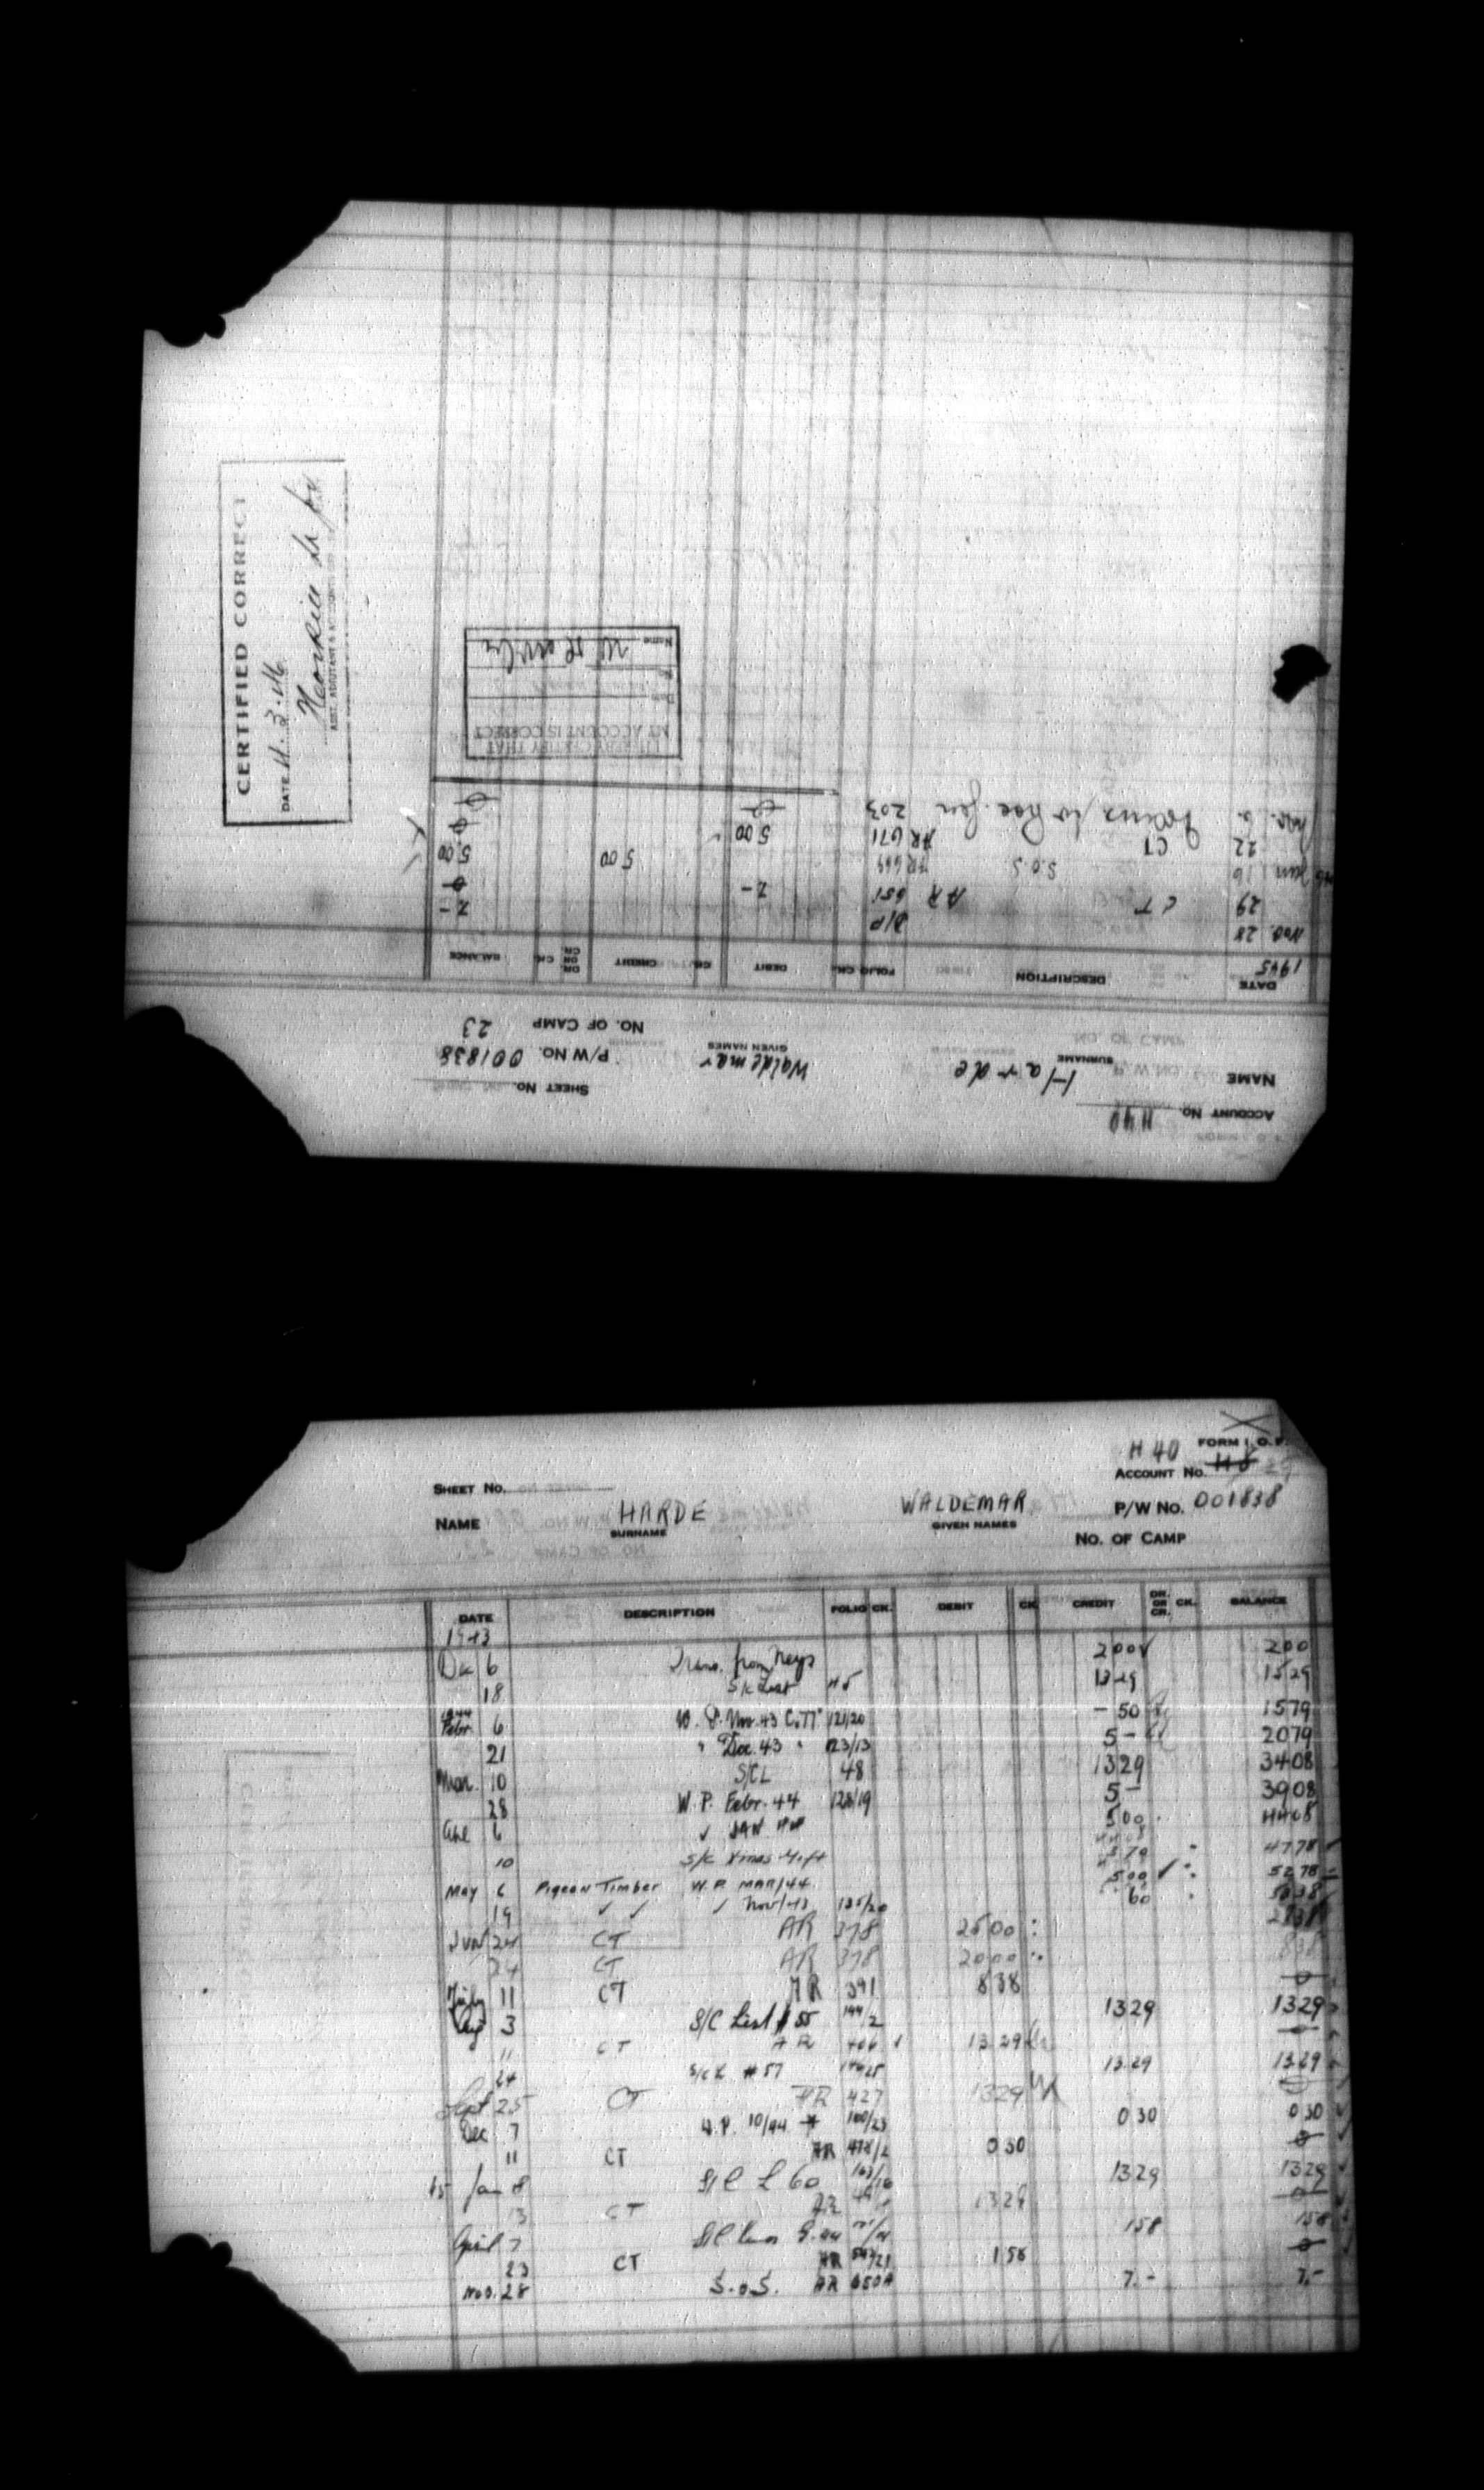 CERTIFIED CORRECT
DATE 11.3.46
ACCOUNT No. H40
SHEET No.
NAME Harde Waldemar P/W No. 001838
SURNAME GIVEN NAMES
NO. OF CAMP 23
DATE DESCRIPTION FOLIO CK. DEBIT CK. CREDIT DR. OR CR. CK. BALANCE
1945
Nov. 28 B/P 7-
29 CT AR 651 7- 0
Jan 16 S.O.S. AR 669 500 5.00
22 CT AR 671 5.00 0
6. 203 0
I HEREBY CERTIFY THAT
MY ACCOUNT IS CORRECT
Date
Name
FORM I.O.F.
H 40
SHEET No. ACCOUNT No. H8
NAME HARDE WALDEMAR P/W No. 001838
SURNAME GIVEN NAMES
No. OF CAMP
DATE DESCRIPTION FOLIO CK. DEBIT CK. CREDIT DR. OR CR. CK. BALANCE
1943
Dec 6 Trans. from Neys 200 200
18 S/C List #5 1329 1529
1944
Febr. 6 W.P. Nov. 43 121/20 -50 1579
21 " Dec. 43 " 123/13 5- 2079
Mar. 10 S/CL 48 1329 3408
28 W.P. Febr. 44 128/19 5- 3908
6 ✓ JAN 500 4408
10 S/C Xmas Gift 4778
May 6 Pigeon Timber W.P. MAR/44 500 5278
19 ✓ ✓ ✓ Nov/43 135/20 60 5338
Jun 24 CT AR 378 2500 2838
24 CT AR 378 2000 838
July 11 CT AR 391 838 0
Aug 3 S/C List 55 144/2 1329 1329
11 CT AR 406 1329 0
24 S/C L #57 1329 1329
Sept 25 CT AR 427 1329 0
Dec 7 W.P. 10/44 160/23 030 030
11 CT AR 478/2 030 0
45 Jan 8 S/C L 60 163/16 1329 1329
13 CT AR 1329 0
April 7 S/C 158 158
23 CT AR 158 0
Nov. 28 S.O.S. AR 650A 7.- 7.-